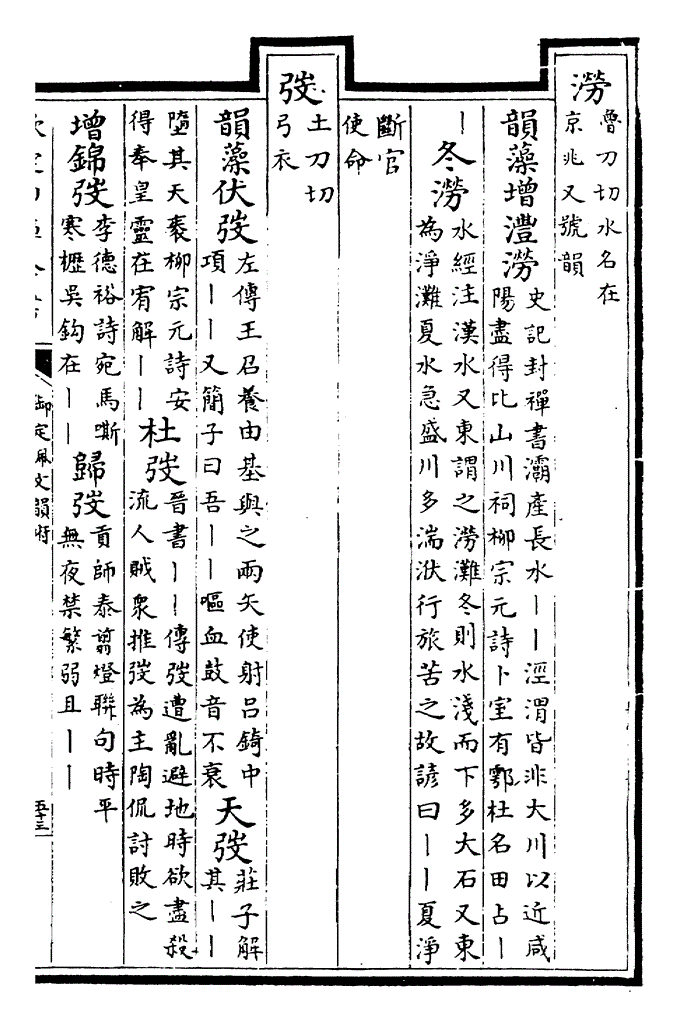 澇魯刀切水名在
京兆又號韻
韻藻增灃澇史記封禪書灞產長水丨丨涇渭皆非大川以近咸
陽盡得比山川祠柳宗元詩卜室有鄠杜名田占丨
丨冬澇水經注漢水又東謂之澇灘冬則水淺而下多大石又東
為淨灘夏水急盛川多湍洑行旅苦之故諺曰丨丨夏淨
斷官
使命
弢土刀切
弓衣
韻藻伏弢左傳王召養由基與之兩矢使射呂錡中
項丨丨又簡子曰吾丨丨嘔血鼓音不衰
天弢莊子解
其丨丨
墮其天袠柳宗元詩安
得奉皇靈在宥解丨丨
杜弢晉書丨丨傳弢遭亂避地時欲盡殺
流人賊衆推弢為主陶侃討敗之
增錦弢李德裕詩宛馬嘶
寒櫪吳鈎在丨丨
歸弢貢師泰翦燈聯句時平
無夜禁繁弱且丨丨
御定佩文韻府
五十三